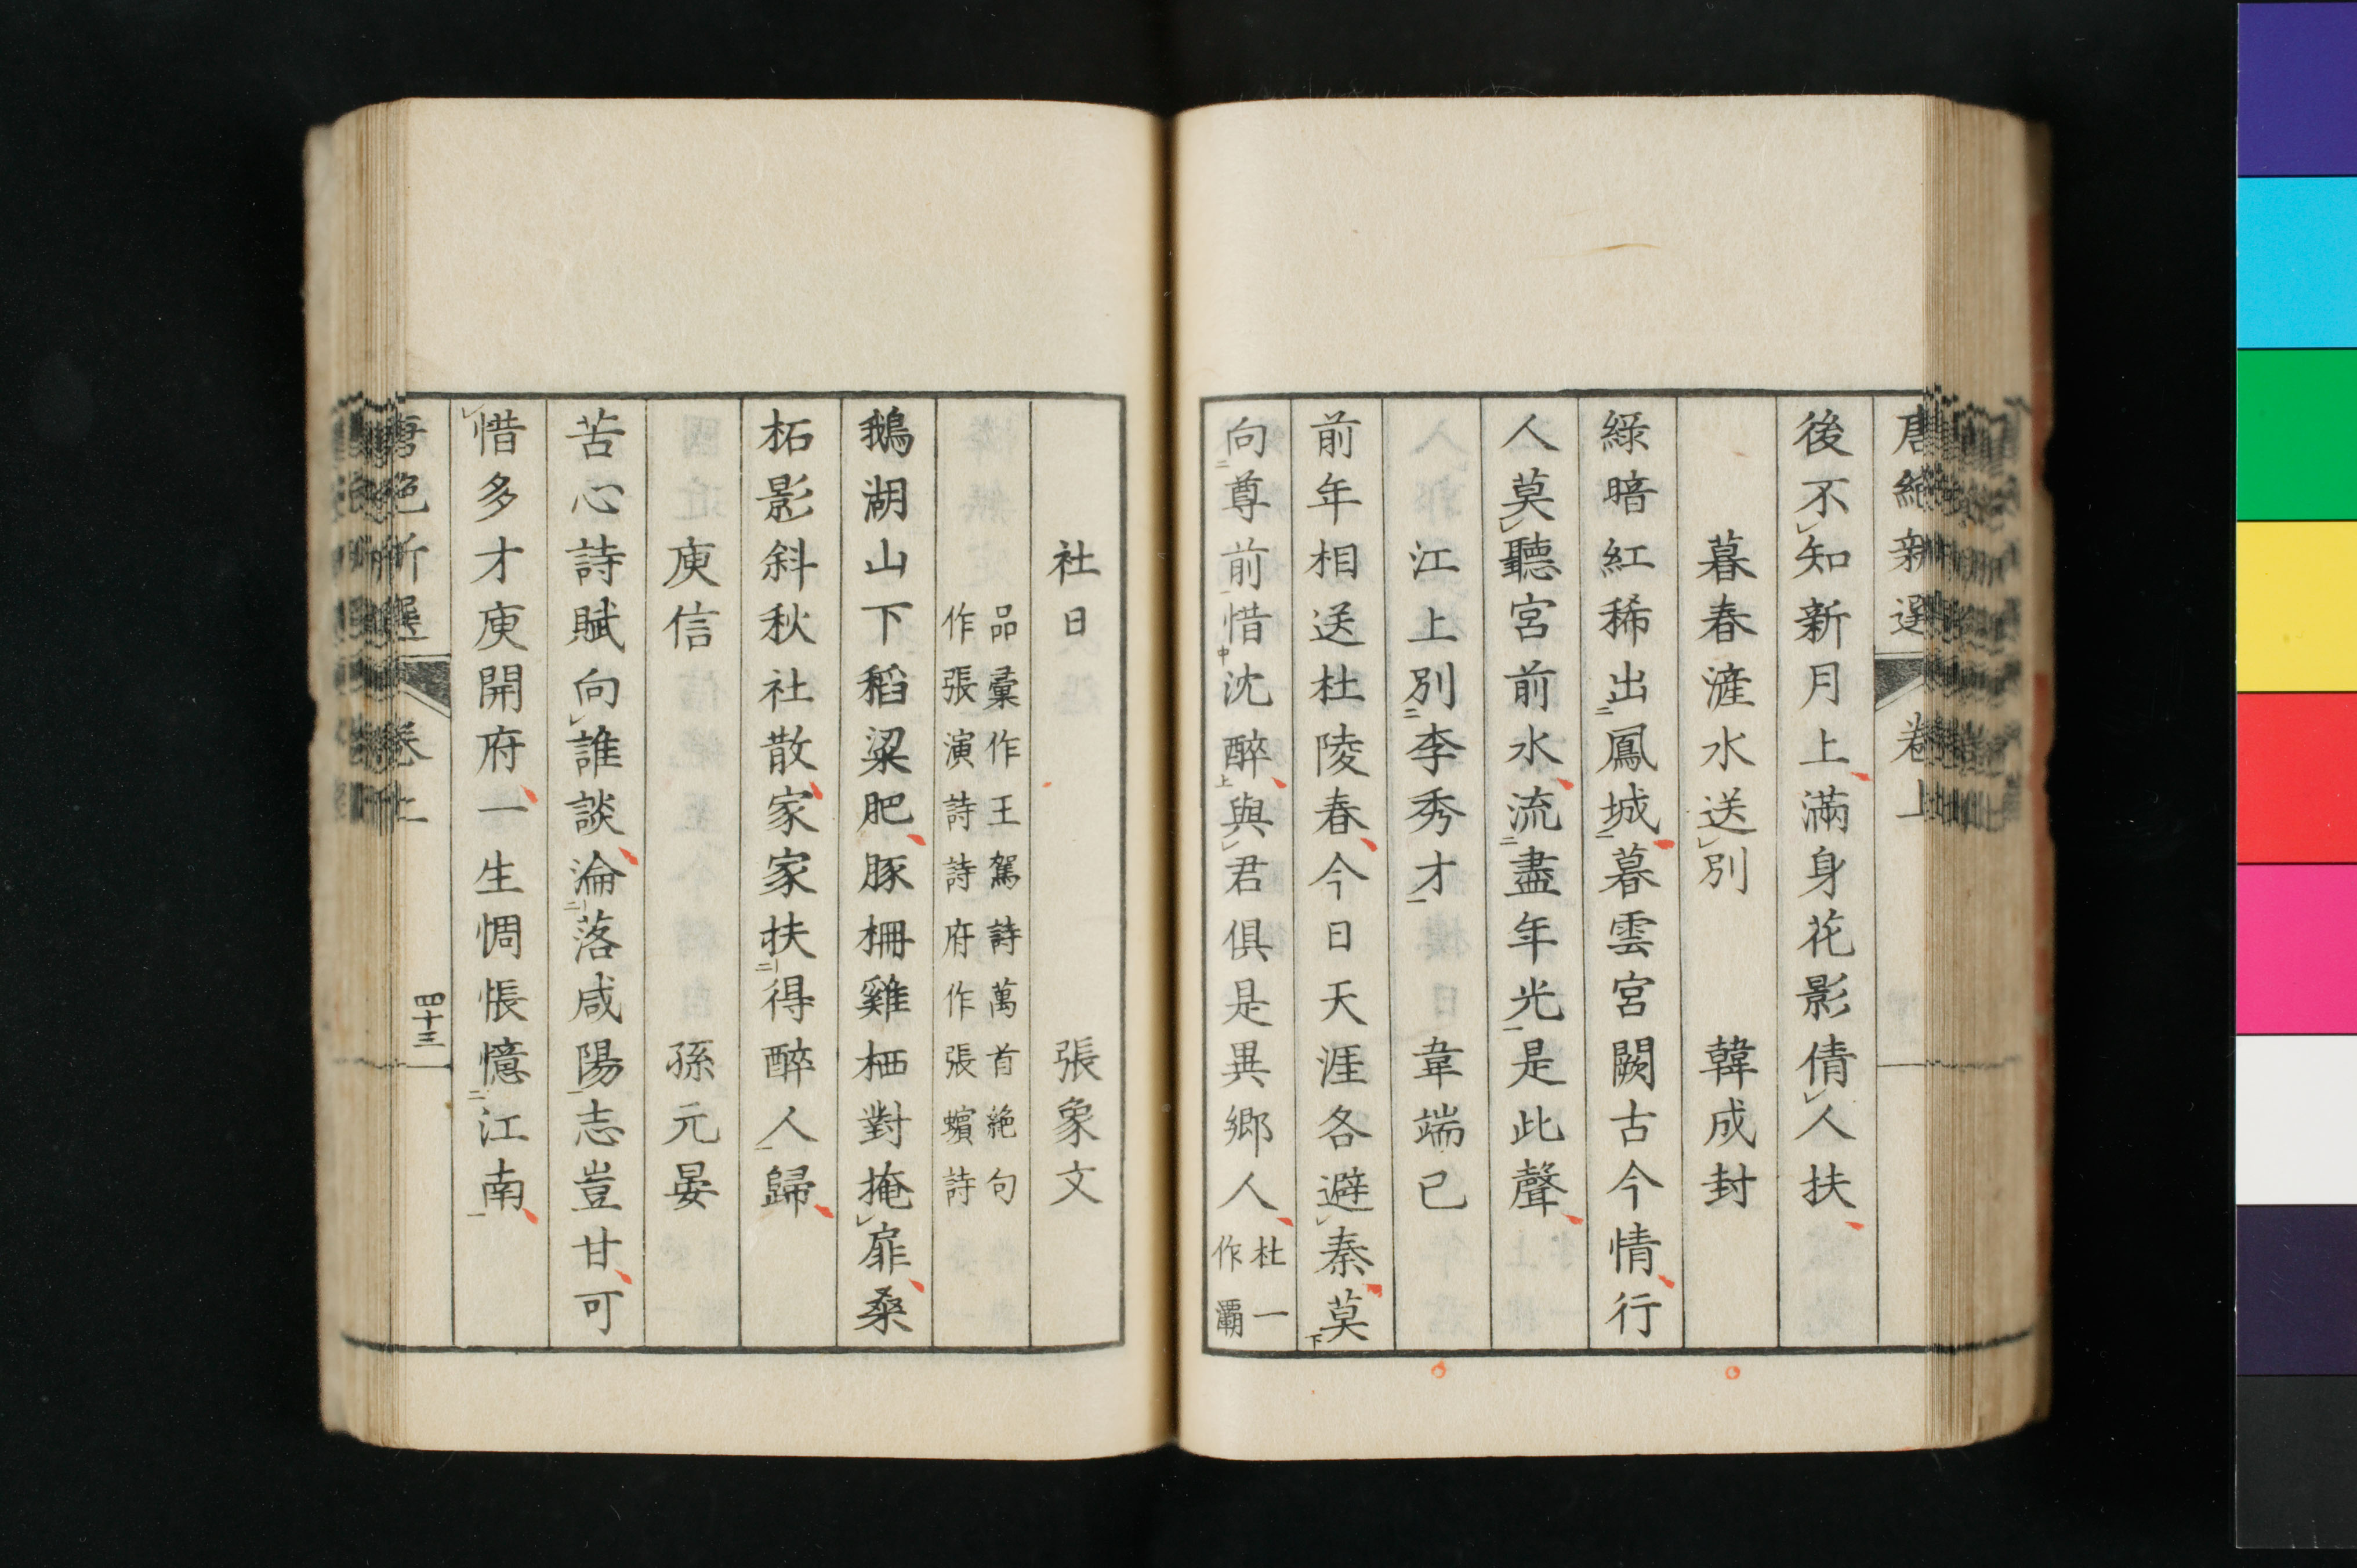 唐絶新選 卷上
後不知新月上滿身花影倩人扶
暮春滻水送別 韓成封
綠暗紅稀出鳳城暮雲宮闕古今情行
人莫聽宮前水流盡年光是此聲
江上別李秀才 韋端已
前年相送杜陵春今日天涯各避秦莫
向尊前惜沈醉與君俱是異鄉人杜一
作灞
社日 張象文
品彙作王駕詩萬首絶句
作張演詩詩府作張蠙詩
鵝湖山下稻粱肥豚柵雞栖對掩扉桑
柘影斜秋社散家家扶得醉人歸
庾信 孫元晏
苦心詩賦向誰談淪落咸陽志豈甘可
惜多才庾開府一生惆悵憶江南
唐絶新選 卷上 四十三